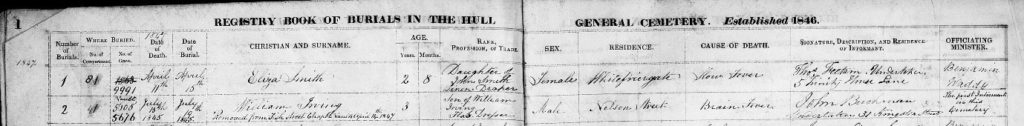 1
REGISTRY BOOK OF BURIALS IN THE HULL GENERAL CEMETERY. Established 1846.
Number of Burial.
WHERE BURIED.
No. of Compartment.
No. of Grave.
Date of Death.
Date of Burial.
CHRISTIAN AND SURNAME.
AGE.
Years.
Months.
RANK, PROFESSION, OR TRADE.
SEX.
RESIDENCE.
CAUSE OF DEATH.
SIGNATURE, DESCRIPTION, AND RESIDENCE OF INFORMANT.
OFFICIATING MINISTER.
1847
1
81
9991
April 11th
April 15th
Eliza Smith
2
8
Daughter of
John Smith
Linen Draper
Female
Whitefriargate
Slow Fever
Thos Undertaker
5 Trinity House Lane
Benjamin
2
41
5105
5676
July 15th
1845
July
William Irving
Removed from Street Chapel 1847
3
Son of William
Irving
Male
Nelson Street
Brain Fever
John
Undertaker 31 Street
The first Interment
in this
Cemetery